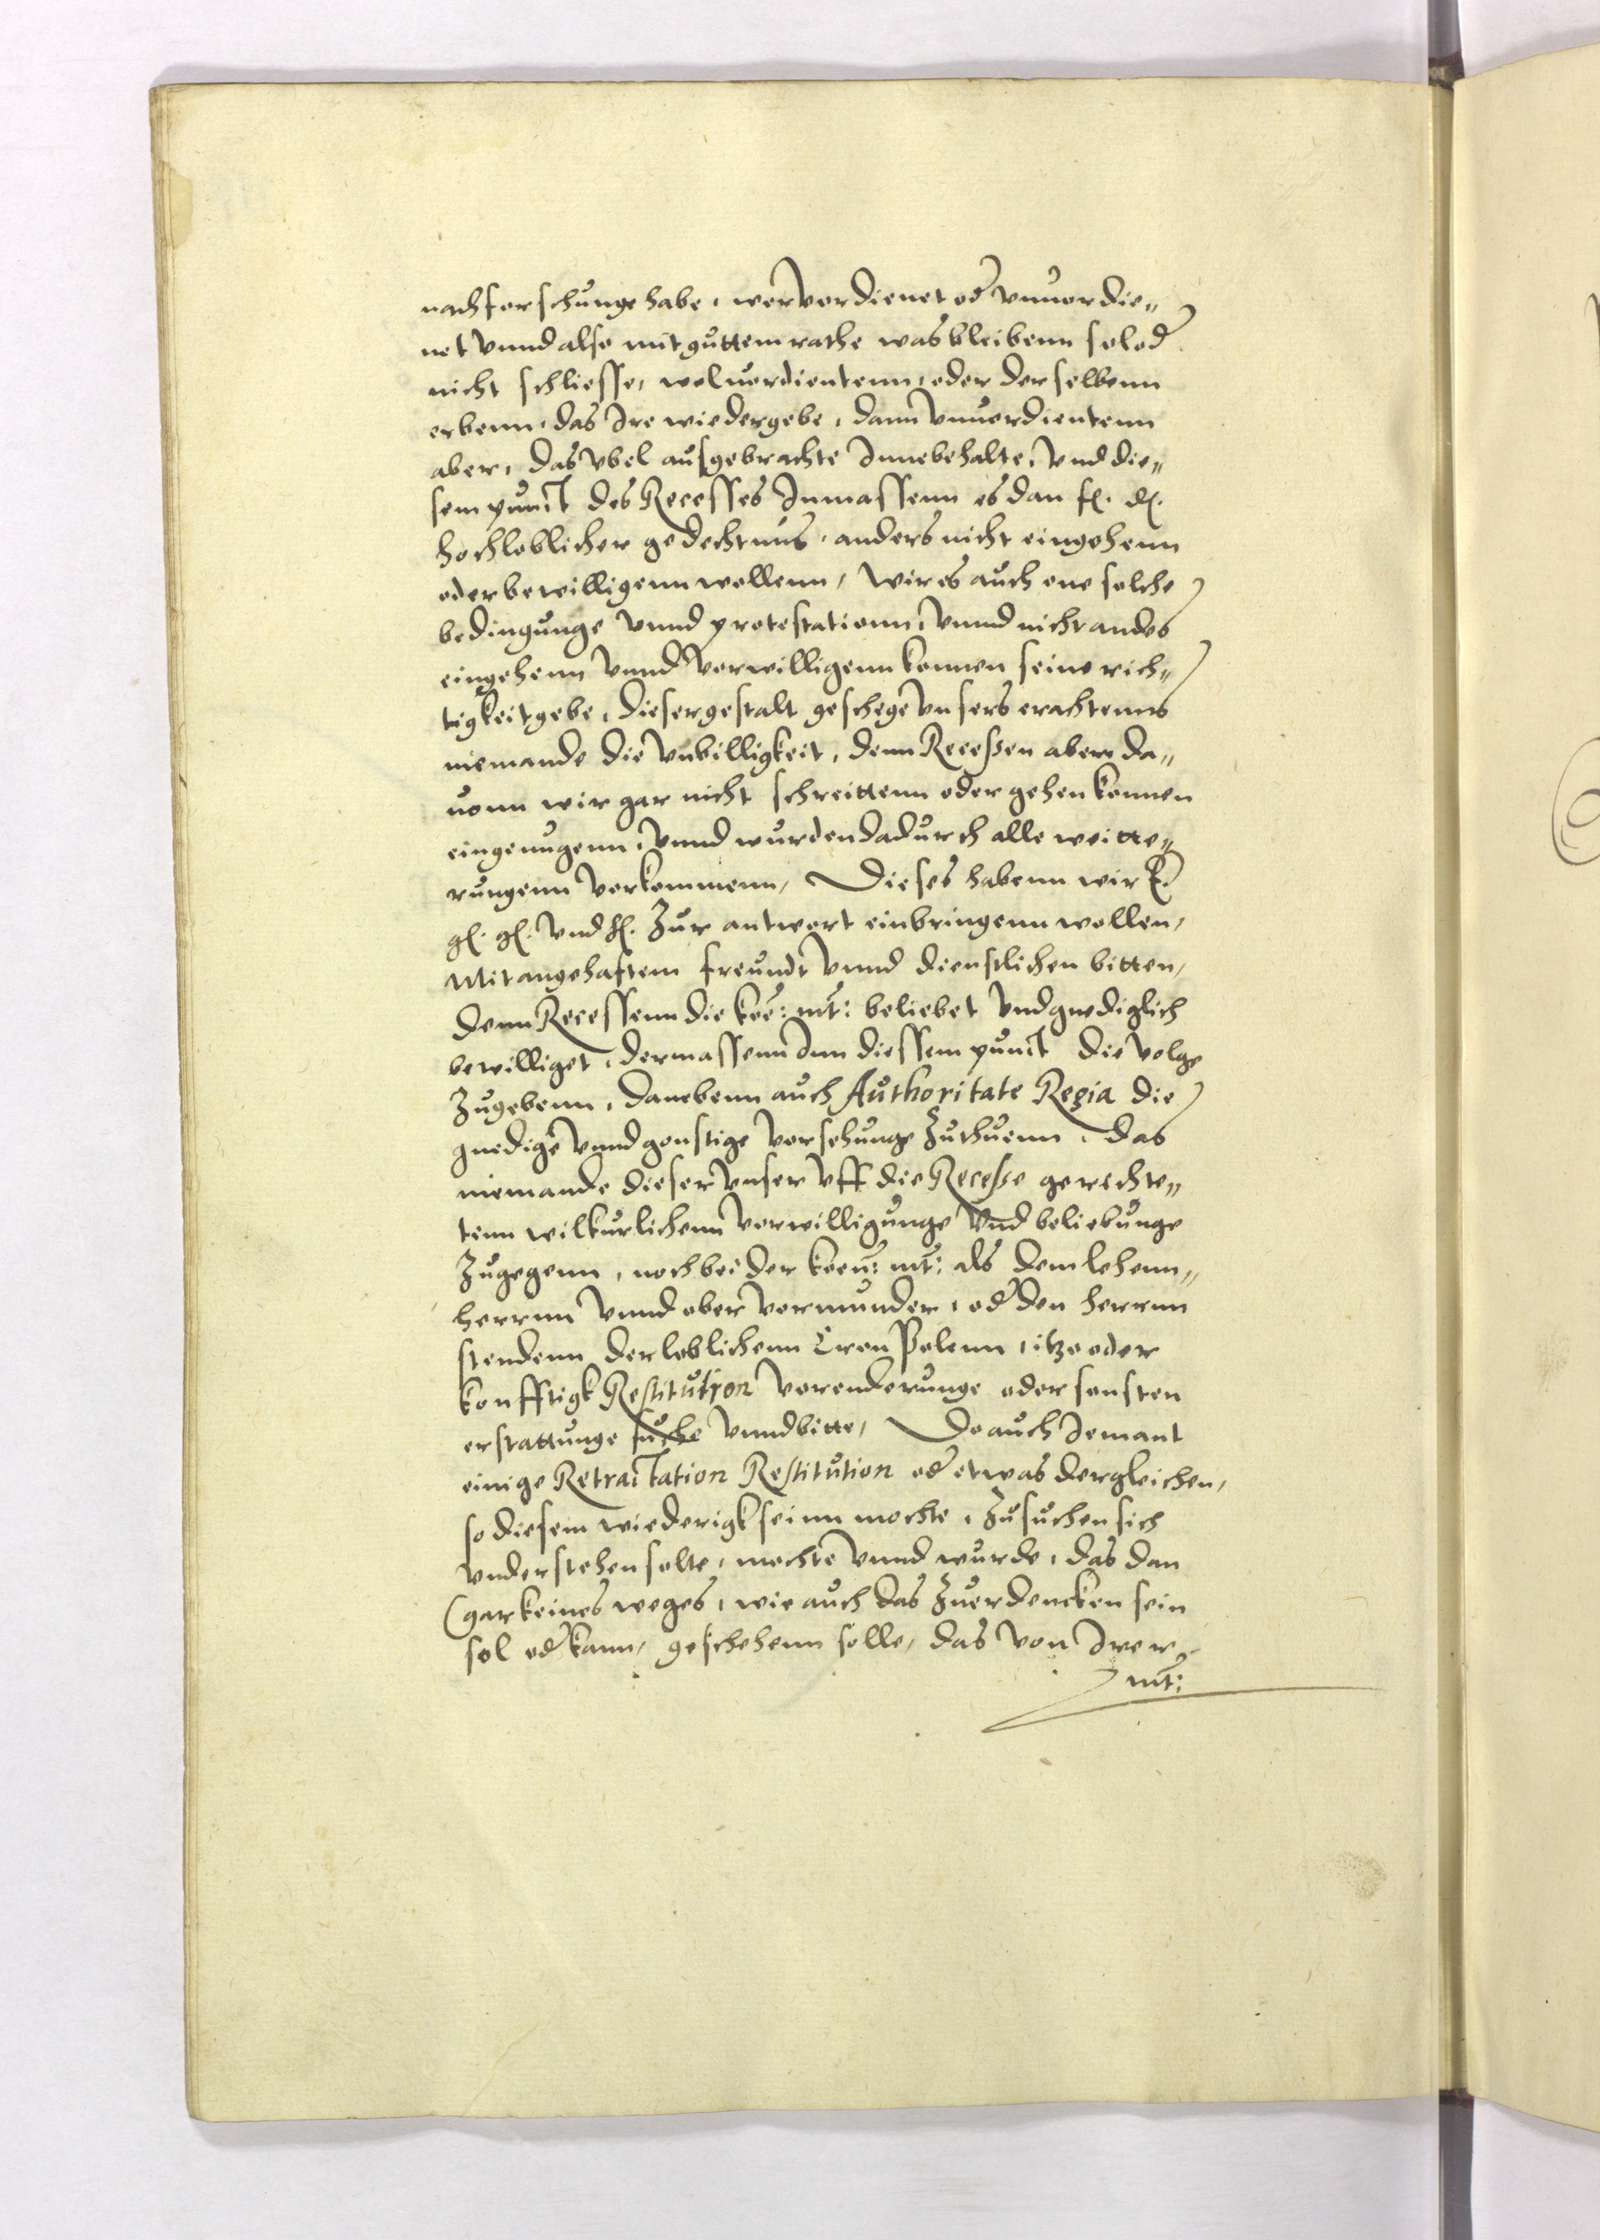 nachforschunge habe, wer verdienet od vnuordie„
net vnnd also mit guttem rathe was bleibenn sol od
nicht schliesse, woluordientenn, oder derselbenn
erbenn, das Ire wiedergebe, dann vnuordientenn
aber, das vbel ausgebrachte Innebehalte, vnd die„
sem punct des Recesses Inmassenn es dan f. d.
hochloblicher gedechtnus, anders nicht eingehenn
oder bewilligenn wollenn, wir es auch one solche
bedingunge vnnd protestationn, vnnd nicht anders
eingehenn vnnd verwilligenn konnen seine rich„
tigkeit gebe, dieser gestalt geschege vnsers erachtenns
niemande die vnbilligkeit, denn Recessen aber, da„
uonn wir gar nicht schreittenn oder gehen konnen
eingenugenn, vnnd wurden dadurch alle weitte„
rungenn verkommenn, Dieses habenn wir E.
g. g. vnd h. zur antwort einbringenn wollen,
Mit angehaftem freundt vnnd dienstlichen bitten,
denn Recessenn die koe: mt: beliebet vnd gnediglich
bewilliget, dermassenn Inn diessem punct die volge
zugebenn, danebenn auch Authoritate Regia die
gnedige vnnd gonstige vorsehunge zuthuenn, das
niemande dieser vnser vff die Recesse gerichte„
tenn wilkurlichenn verwilligunge vnd beliebunge
zugegenn, noch bei der koen: mt: als dem lehenn„
herrnn vnnd ober vormunder, od den herrnn
stendenn der loblichenn Cron Polenn, itzo oder
konfftigk Restitution verenderunge oder sonsten
erstattunge suche vnnd bitte, Do auch Jemant
einige Retractation Restitution od etwas dergleichen,
so diesem wiederigk seinn mochte, zusuchen sich
vnderstehen solte, mochte vnnd wurde, das dan
gar keines weges, wie auch das zuerdencken sein
sol od kann, geschehenn solle, das von Irer
mt: